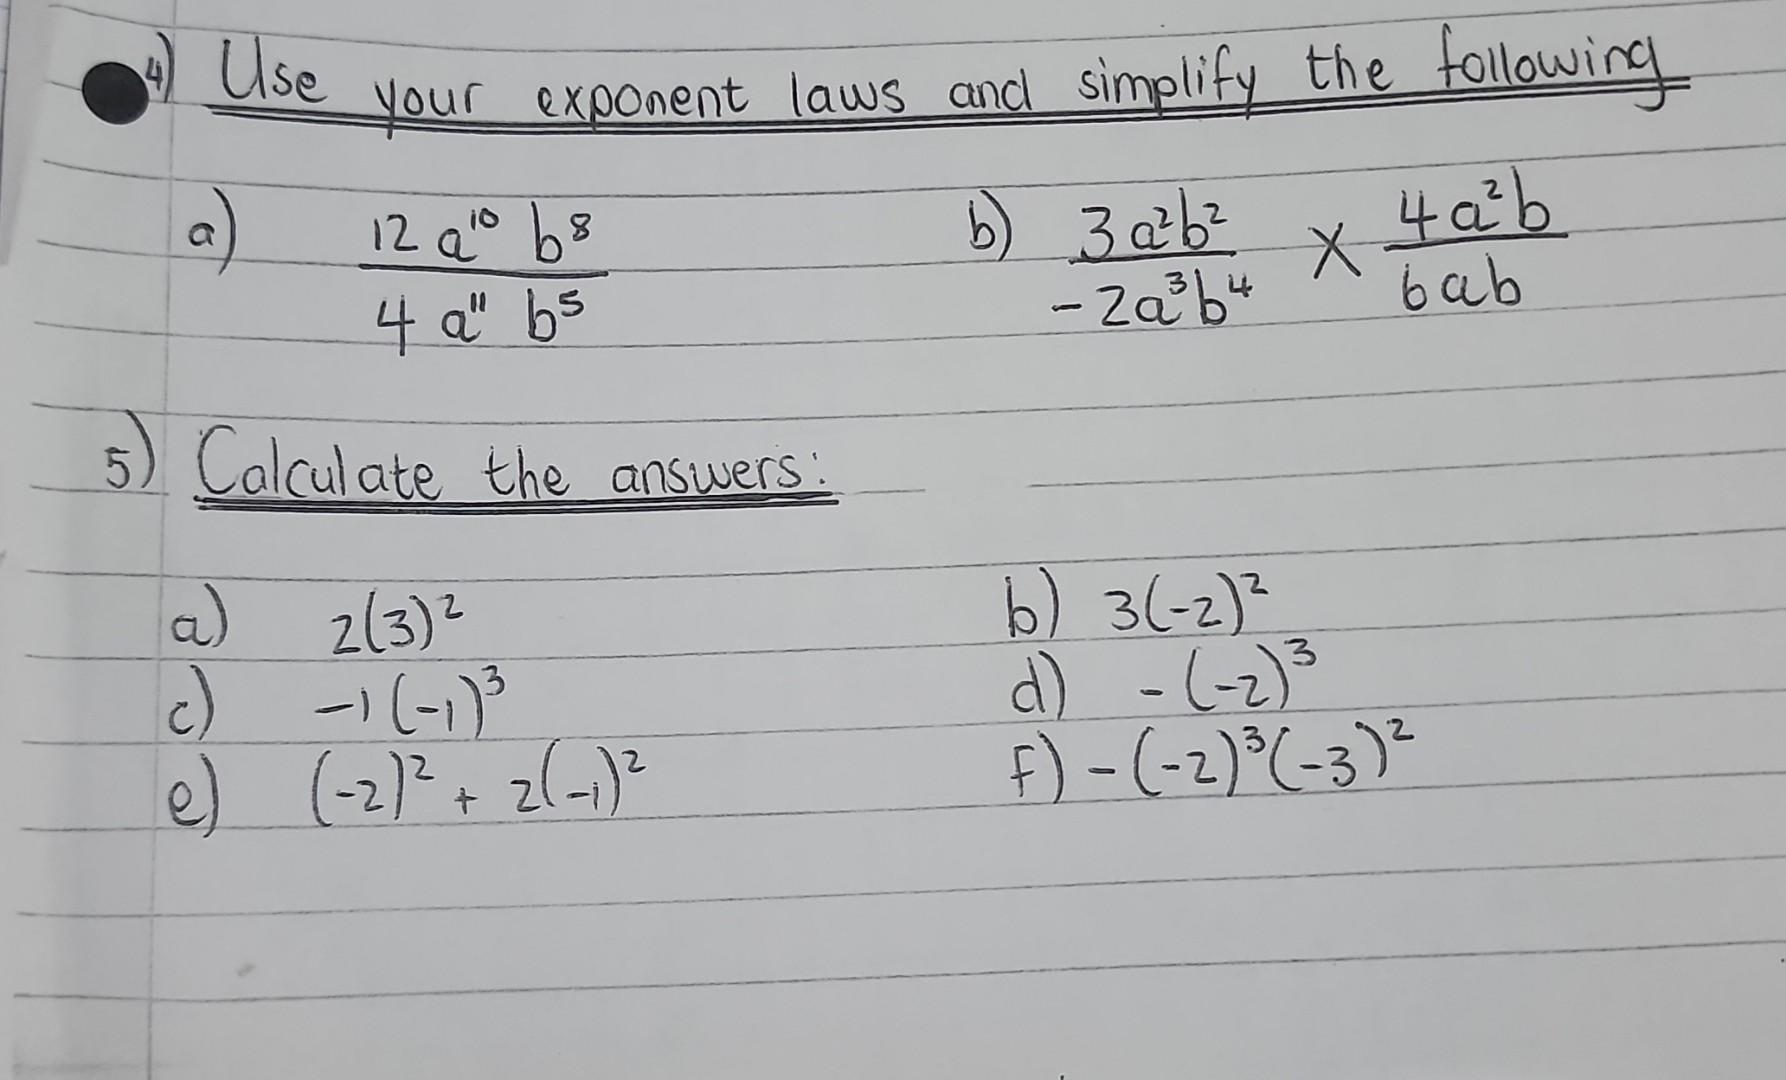 4) Use your exponent laws and simplify the following
a) 12 a¹⁰ b⁸ / 4 a¹¹ b⁵ b) 3a²b² / -2a³b⁴ × 4a²b / 6ab
5) Calculate the answers:
a) 2(3)² b) 3(-2)²
c) -1(-1)³ d) -(-2)³
e) (-2)² + 2(-1)² f) -(-2)³(-3)²